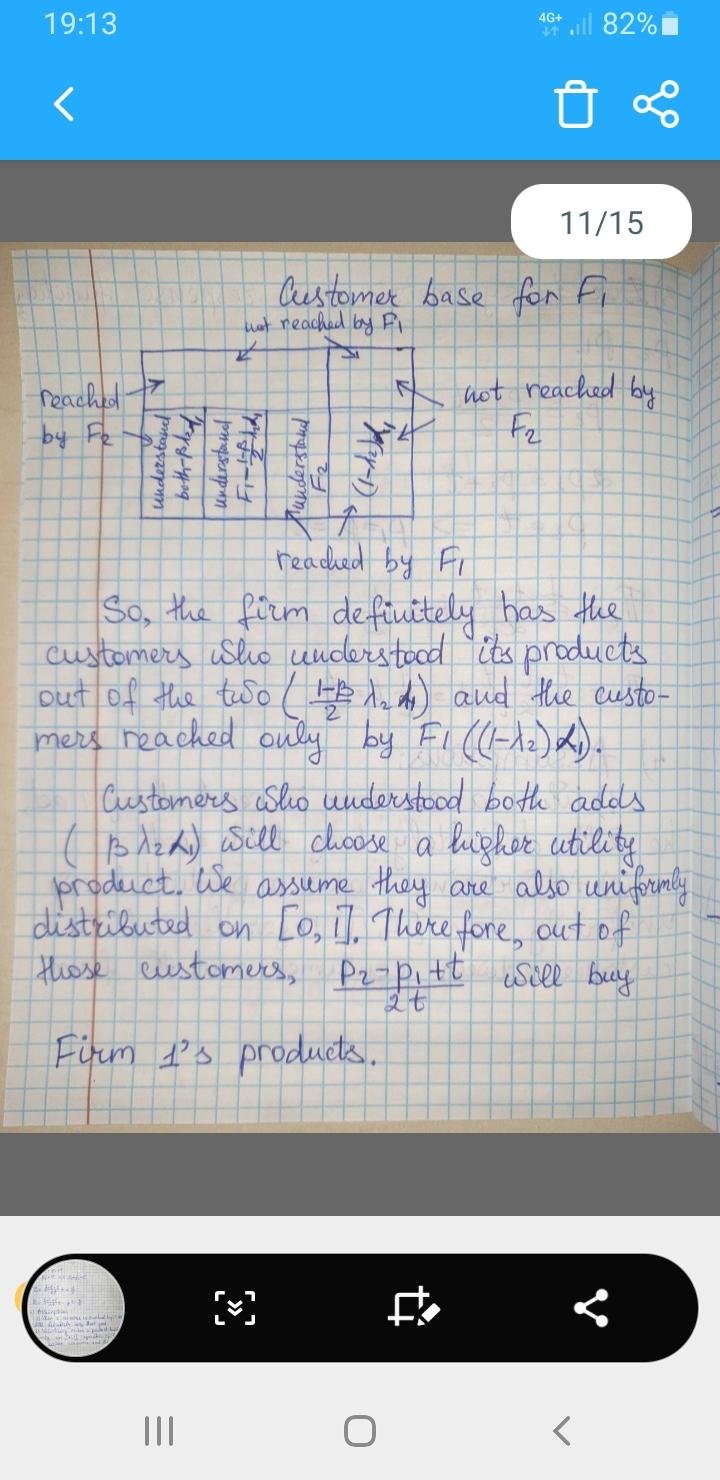 19:13
4G+ 82%
11/15
Customer base for F₁
not reached by F₁
reached
by F₂
not reached by
F₂
understand
both - βλ₂α₁
understand
F₁ - (1-β)/2 λ₂α₁
understand
F₂
(1-λ₂)α₁
reached by F₁
So, the firm definitely has the
customers who understood its products
out of the two ( (1-β)/2 λ₂ α₁) and the custo-
mers reached only by F1 ((1-λ₂)α₁).
Customers who understood both adds
( βλ₂α₁) will choose a higher utility
product. We assume they are also uniformly
distributed on [0, 1]. Therefore, out of
those customers, (p₂-p₁+t)/2t will buy
Firm 1's products.